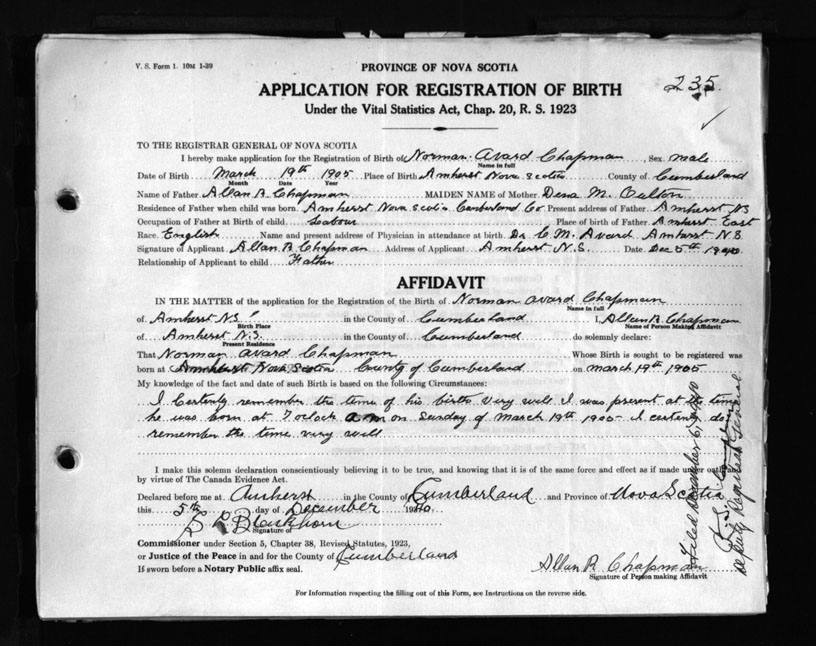 V. S. Form 1. 10M 1-39
PROVINCE OF NOVA SCOTIA
235.
APPLICATION FOR REGISTRATION OF BIRTH
Under the Vital Statistics Act, Chap. 20, R. S. 1923
TO THE REGISTRAR GENERAL OF NOVA SCOTIA
I hereby make application for the Registration of Birth of Norman Avard Chapman Sex male
Name in full
Date of Birth March 19th 1905 Place of Birth Amherst Nova Scotia County of Cumberland
Month Date Year
Name of Father Allan R. Chapman MAIDEN NAME of Mother Dena M. Oulton
Residence of Father when child was born. Amherst Nova Scotia Cumberland Co Present address of Father Amherst NS
Occupation of Father at Birth of child. Labour Place of birth of Father Amherst East
Race. English Name and present address of Physician in attendance at birth. Dr C. M. Avard Amherst N.S
Signature of Applicant Allan R. Chapman Address of Applicant Amherst N.S. Date Dec 5th 1940
Relationship of Applicant to child Father
AFFIDAVIT
IN THE MATTER of the application for the Registration of the Birth of Norman avard Chapman
Name in full
of Amherst N.S. in the County of Cumberland I, Allan R. Chapman
Birth Place Name of Person Making Affidavit
of Amherst N.S. in the County of Cumberland do solemnly declare:
Present Residence
That Norman avard Chapman Whose Birth is sought to be registered was
born at Amherst Nova Scotia County of Cumberland on march 19th 1905
My knowledge of the fact and date of such Birth is based on the following Circumstances:
I Certenly remember the time of his birth Very will I was present at the time
he was born at 7 oclock a m on Sunday of March 19th 1905 - I certenly do
remember the time very will
I make this solemn declaration conscientiously believing it to be true, and knowing that it is of the same force and effect as if made under oath
by virtue of The Canada Evidence Act.
Declared before me at Amherst in the County of Cumberland and Province of Nova Scotia
this 5th day of December 1940
Blenkhorn
Signature of
Commissioner under Section 5, Chapter 38, Revised Statutes, 1923,
or Justice of the Peace in and for the County of Cumberland
If sworn before a Notary Public affix seal.
Allan R. Chapman
Signature of Person making Affidavit
For Information respecting the filling out of this Form, see Instructions on the reverse side.
Filed December 6, 1940
Deputy Registrar General